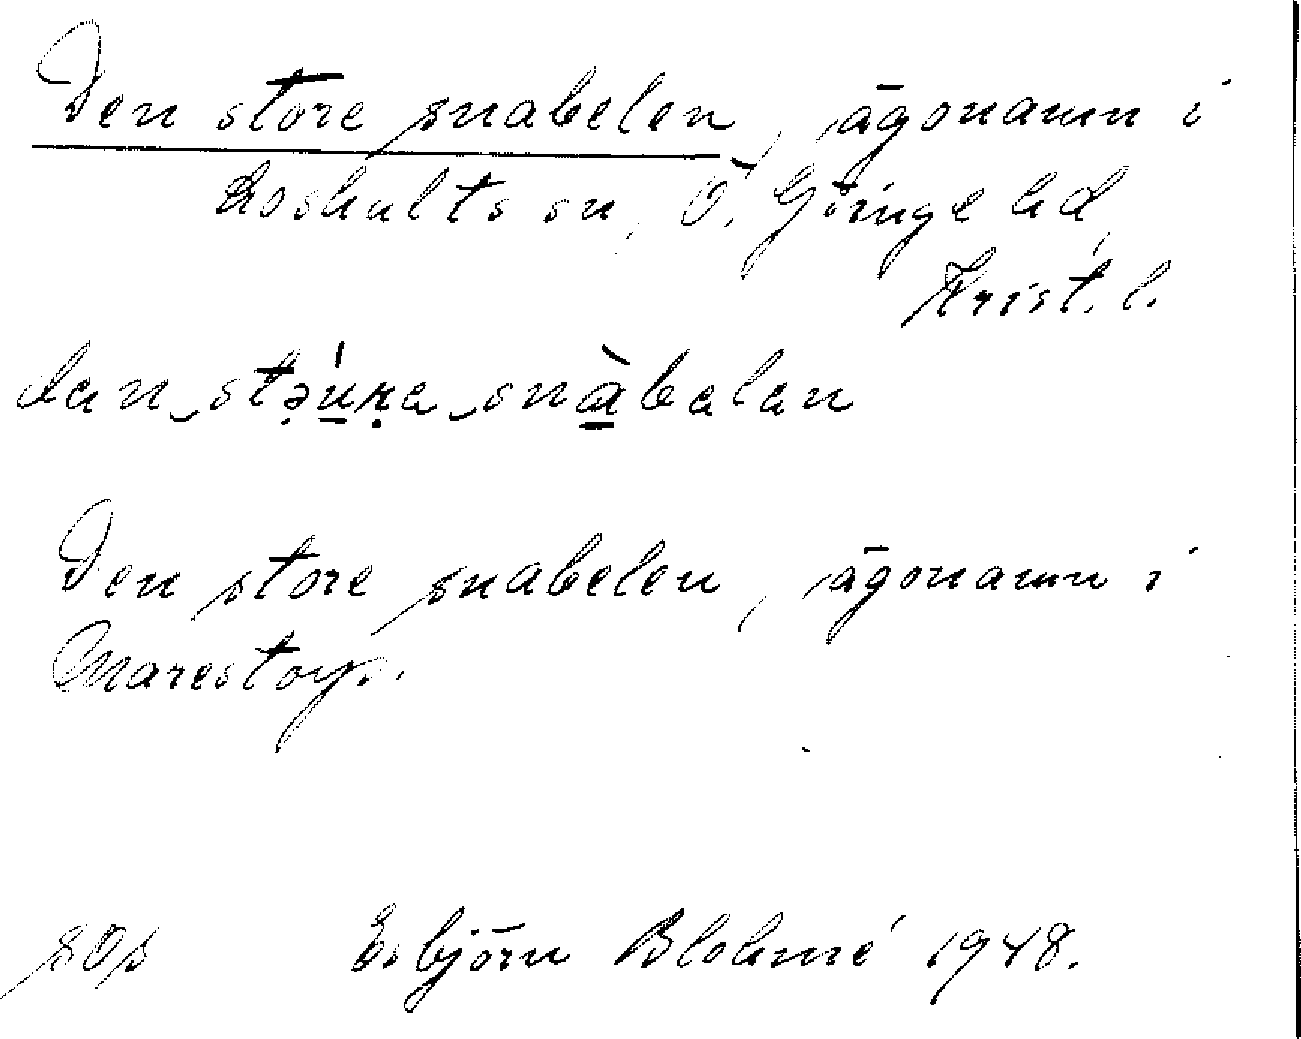 Den store snabelen, ägonamn i
Loshults sn, Ö. Göinge hd,
Krist. l.
dan stəu̱ra snàbalan
Den store snabelen, ägonamn i
Marestorp.
sos Esbjörn Blohmé 1948.